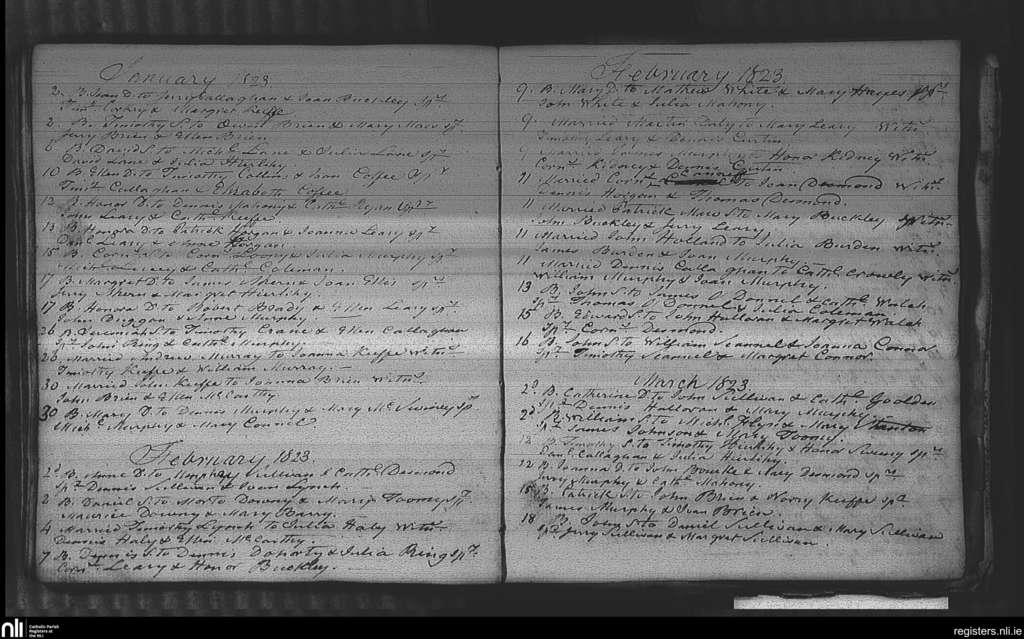 January 1823
2. B. Joan D. to Jerry Callaghan & Joan Buckley Spr
Timt Corby & Margret Keeffe
2. B. Timothy S. to Owen Brien & Mary Spr
Jerry Brien & Ellen Brien
B. David S. to Michl Lane & Julia Lane Spr
David Lane & Julia Hurlihy
10 B. Ellen D. to Timothy Collins & Joan Coffee Spr
Timt Callaghan & Elizabeth Coffee
12 B. Honor D. to Dennis Mahony & Cathe Ryan Spr
John Leary & Cathe Keeffe
13 B. Honora D. to Patrick Horgan & Joanna Leary Spr
Danl Leary & Horgan
15 B. Corns S. to Corns Loony & Julia Murphy Spr
& Cathe Coleman
17 B. Margret D. to James Ahern & Joan Ellis Spr
Jerry Ahern & Margret Hierlihy
17 B. Honora D. to Robert Brady & Ellen Leary Spr
John & Murphy
26 B. Jeremiah S. to Timothy Crane & Ellen Callaghan
Spr John Ring & Cathe Murphy
26 Married Andrew Murray to Joanna Keeffe Witns
Timothy Keeffe & William Murray.
30 Married John Keeffe to Joanna Brien Witns
John Brien & Ellen McCarthy
30 B. Mary D. to Dennis Murphy & Mary Mc Swiney Spr
Michl Murphy & Mary Connell
February 1823.
2d B. D. to Murphy Sullivan & Cathe Desmond
Spr Dennis Sullivan & Joan Lynch
2 B. Daniel S. to Morto Downy & Mary Toomy Spr
Maurice Downy & Mary Barry.
4 Married Timothy Lynch to Julia Haly Witns
Dennis Haly & Ellen McCarthy.
7 B. Dennis S. to Dennis Doharty & Julia Ring Spr
Corns Leary & Honor Buckley.
February 1823.
9. B. Mary D. to Mathew White & Mary Hayes Spr
John White & Julia Mahony.
9. Married Martin Daly to Mary Leary Witns
Timothy Leary & Dennis Curtin
9 Married Murphy to Honor Kidney Witns
Corns Kidney & Dennis Curtin
11 Married Corns Connor to Joan Desmond Witns
Dennis Horgan & Thomas Desmond.
11 Married Patrick to Mary Buckley Witns
John Buckley & Jerry Leary
11 Married John Holland to Julia Burden Witns
James Burden & Joan Murphy
11 Married Dennis Callaghan to Cathe Crowly Witns
William Murphy & Joan Murphy.
13 B. John S. to James O Donnel & Cathe Walsh
Spr Thomas O Donnel & Julia Coleman
15 B. Edward S. to John Hallovan & Margret Walsh
Spr Corns Desmond.
16 B. John S. to William Scannel & Joanna Connor
Spr Timothy Scannel & Margret Connor.
March 1823.
2d B. Catherine D. to John Sullivan & Cathe Goolden
Spr Dennis Hallovan & Mary Murphy
2d B. William S. to Michl Flyn & Mary Stanton
Spr James Johnson & Mary Toomy.
12 B. Timothy S. to Timothy Hierlihy & Honor Swiny Spr
Danl Callaghan & Julia Hierlihy
12 B. Joanna D. to John Bourke & Mary Desmond Spr
Jerry Murphy & Cathe Mahony.
15 B. Patrick S. to John Brien & Norry Keeffe Spr
James Murphy & Joan Brien
18 B. John S. to Daniel Sullivan & Mary Sullivan
Spr Jerry Sullivan & Margret Sullivan
nli
Catholic Parish
Registers at
the NLI
registers.nli.ie